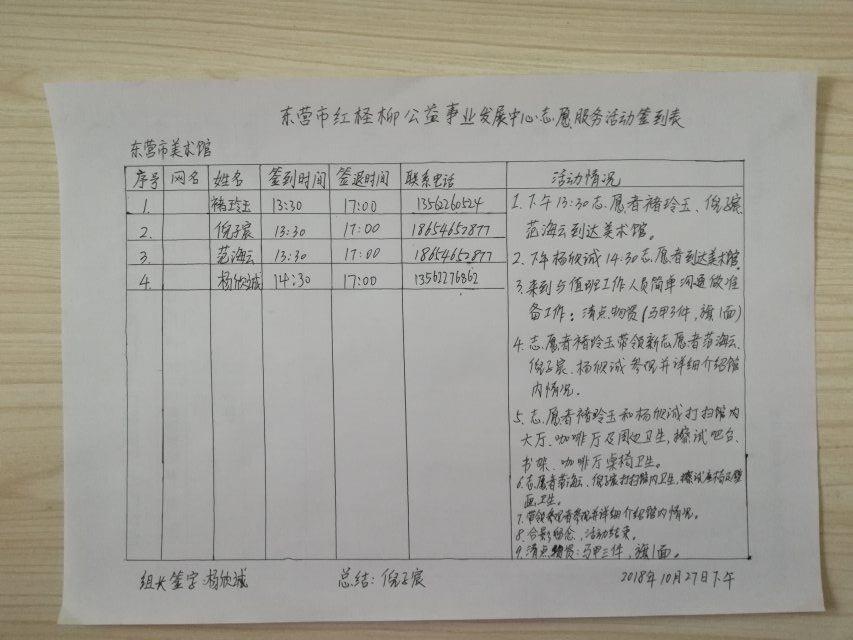 东营市红柽柳公益事业发展中心志愿服务活动签到表
东营市美术馆
序号 网名 姓名 签到时间 签退时间 联系电话 活动情况
1. 褚玲玉 13:30 17:00 1356260524
2. 倪子宸 13:30 17:00 18654652877
3. 范海云 13:30 17:00 18654652877
4. 杨欣诚 14:30 17:00 13562276862
1.下午13:30志愿者褚玲玉、倪子宸、
范海云到达美术馆。
2.下午杨欣诚14:30志愿者到达美术馆.
3.来到与值班工作人员简单沟通做准
备工作:清点物资(马甲3件,旗1面)
4.志愿者褚玲玉带领新志愿者范海云、
倪子宸、杨欣诚参观并详细介绍馆
内情况。
5.志愿者褚玲玉和杨欣诚打扫馆内
大厅、咖啡厅及周边卫生,擦试吧台、
书架、咖啡厅桌椅卫生。
6.志愿者范海云、倪子宸打扫馆内卫生,擦试座椅及壁
画卫生。
7.带领参观者参观并详细介绍馆内情况。
8.合影留念,活动结束。
9.清点物资:马甲三件,旗1面。
组长签字:杨欣诚 总结:倪子宸 2018年10月27日下午